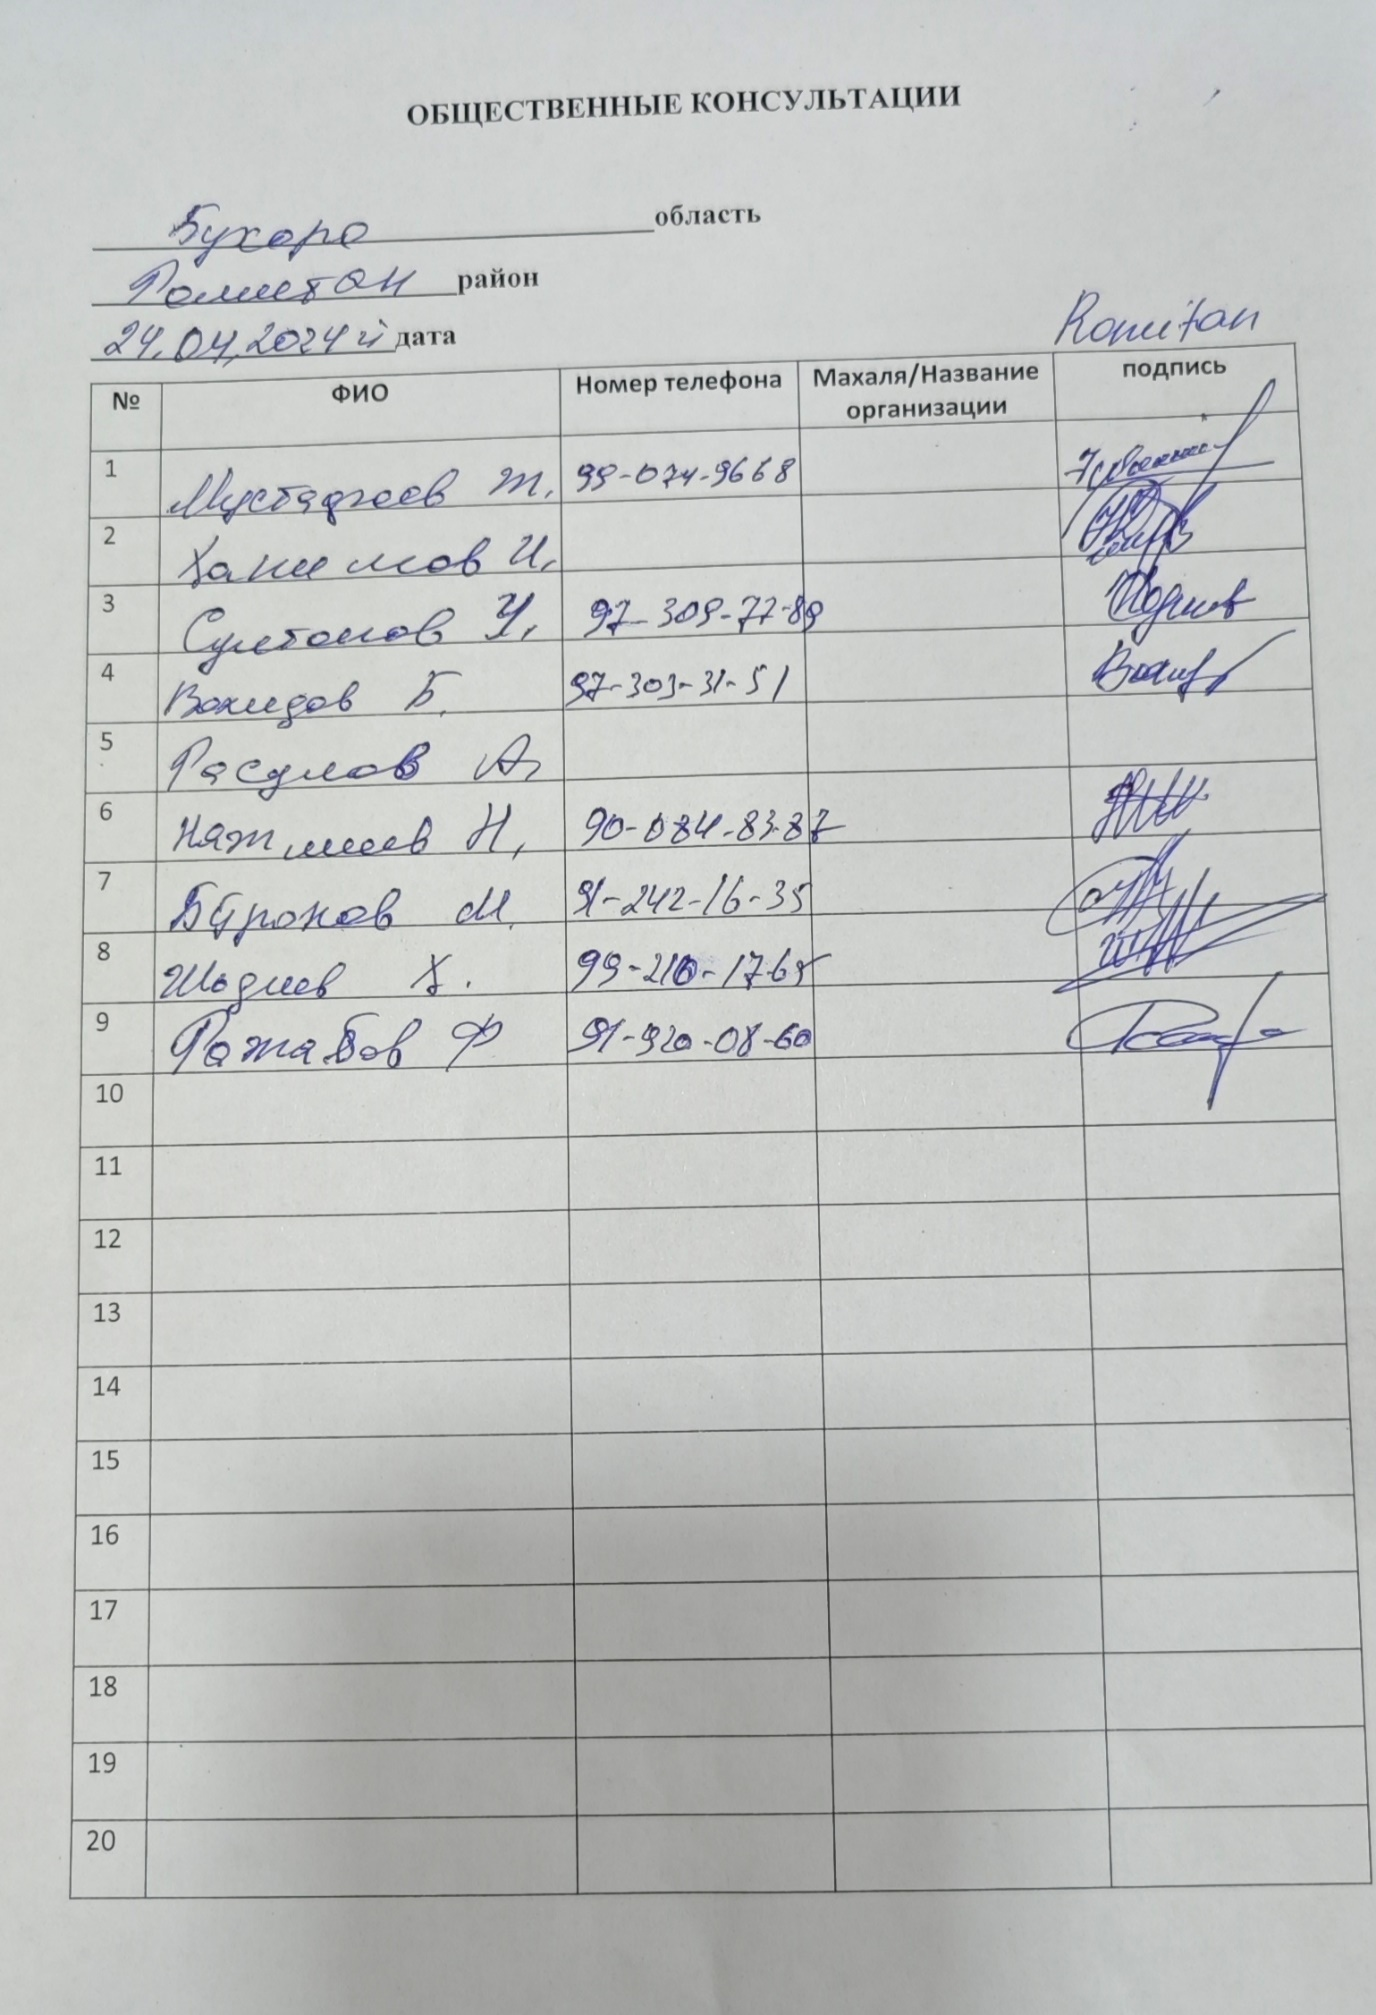 ОБЩЕСТВЕННЫЕ КОНСУЛЬТАЦИИ
Бухоро область
Ромитан район
24.04.2024 й дата
Romitan
№ ФИО Номер телефона Махаля/Название организации подпись
1 Мустафоев Т. 99-074-9668
2 Хакимов И.
3 Султонов У. 97-309-77-89
4 Вохидов Б. 97-303-31-51 Вохид
5 Расулов А.
6 Нажмиев Н, 90-084-83-87
7 Бўронов М. 91-242-16-35
8 Шодиев Х. 99-210-17-65
9 Ражабов Ф 91-920-08-60
10
11
12
13
14
15
16
17
18
19
20